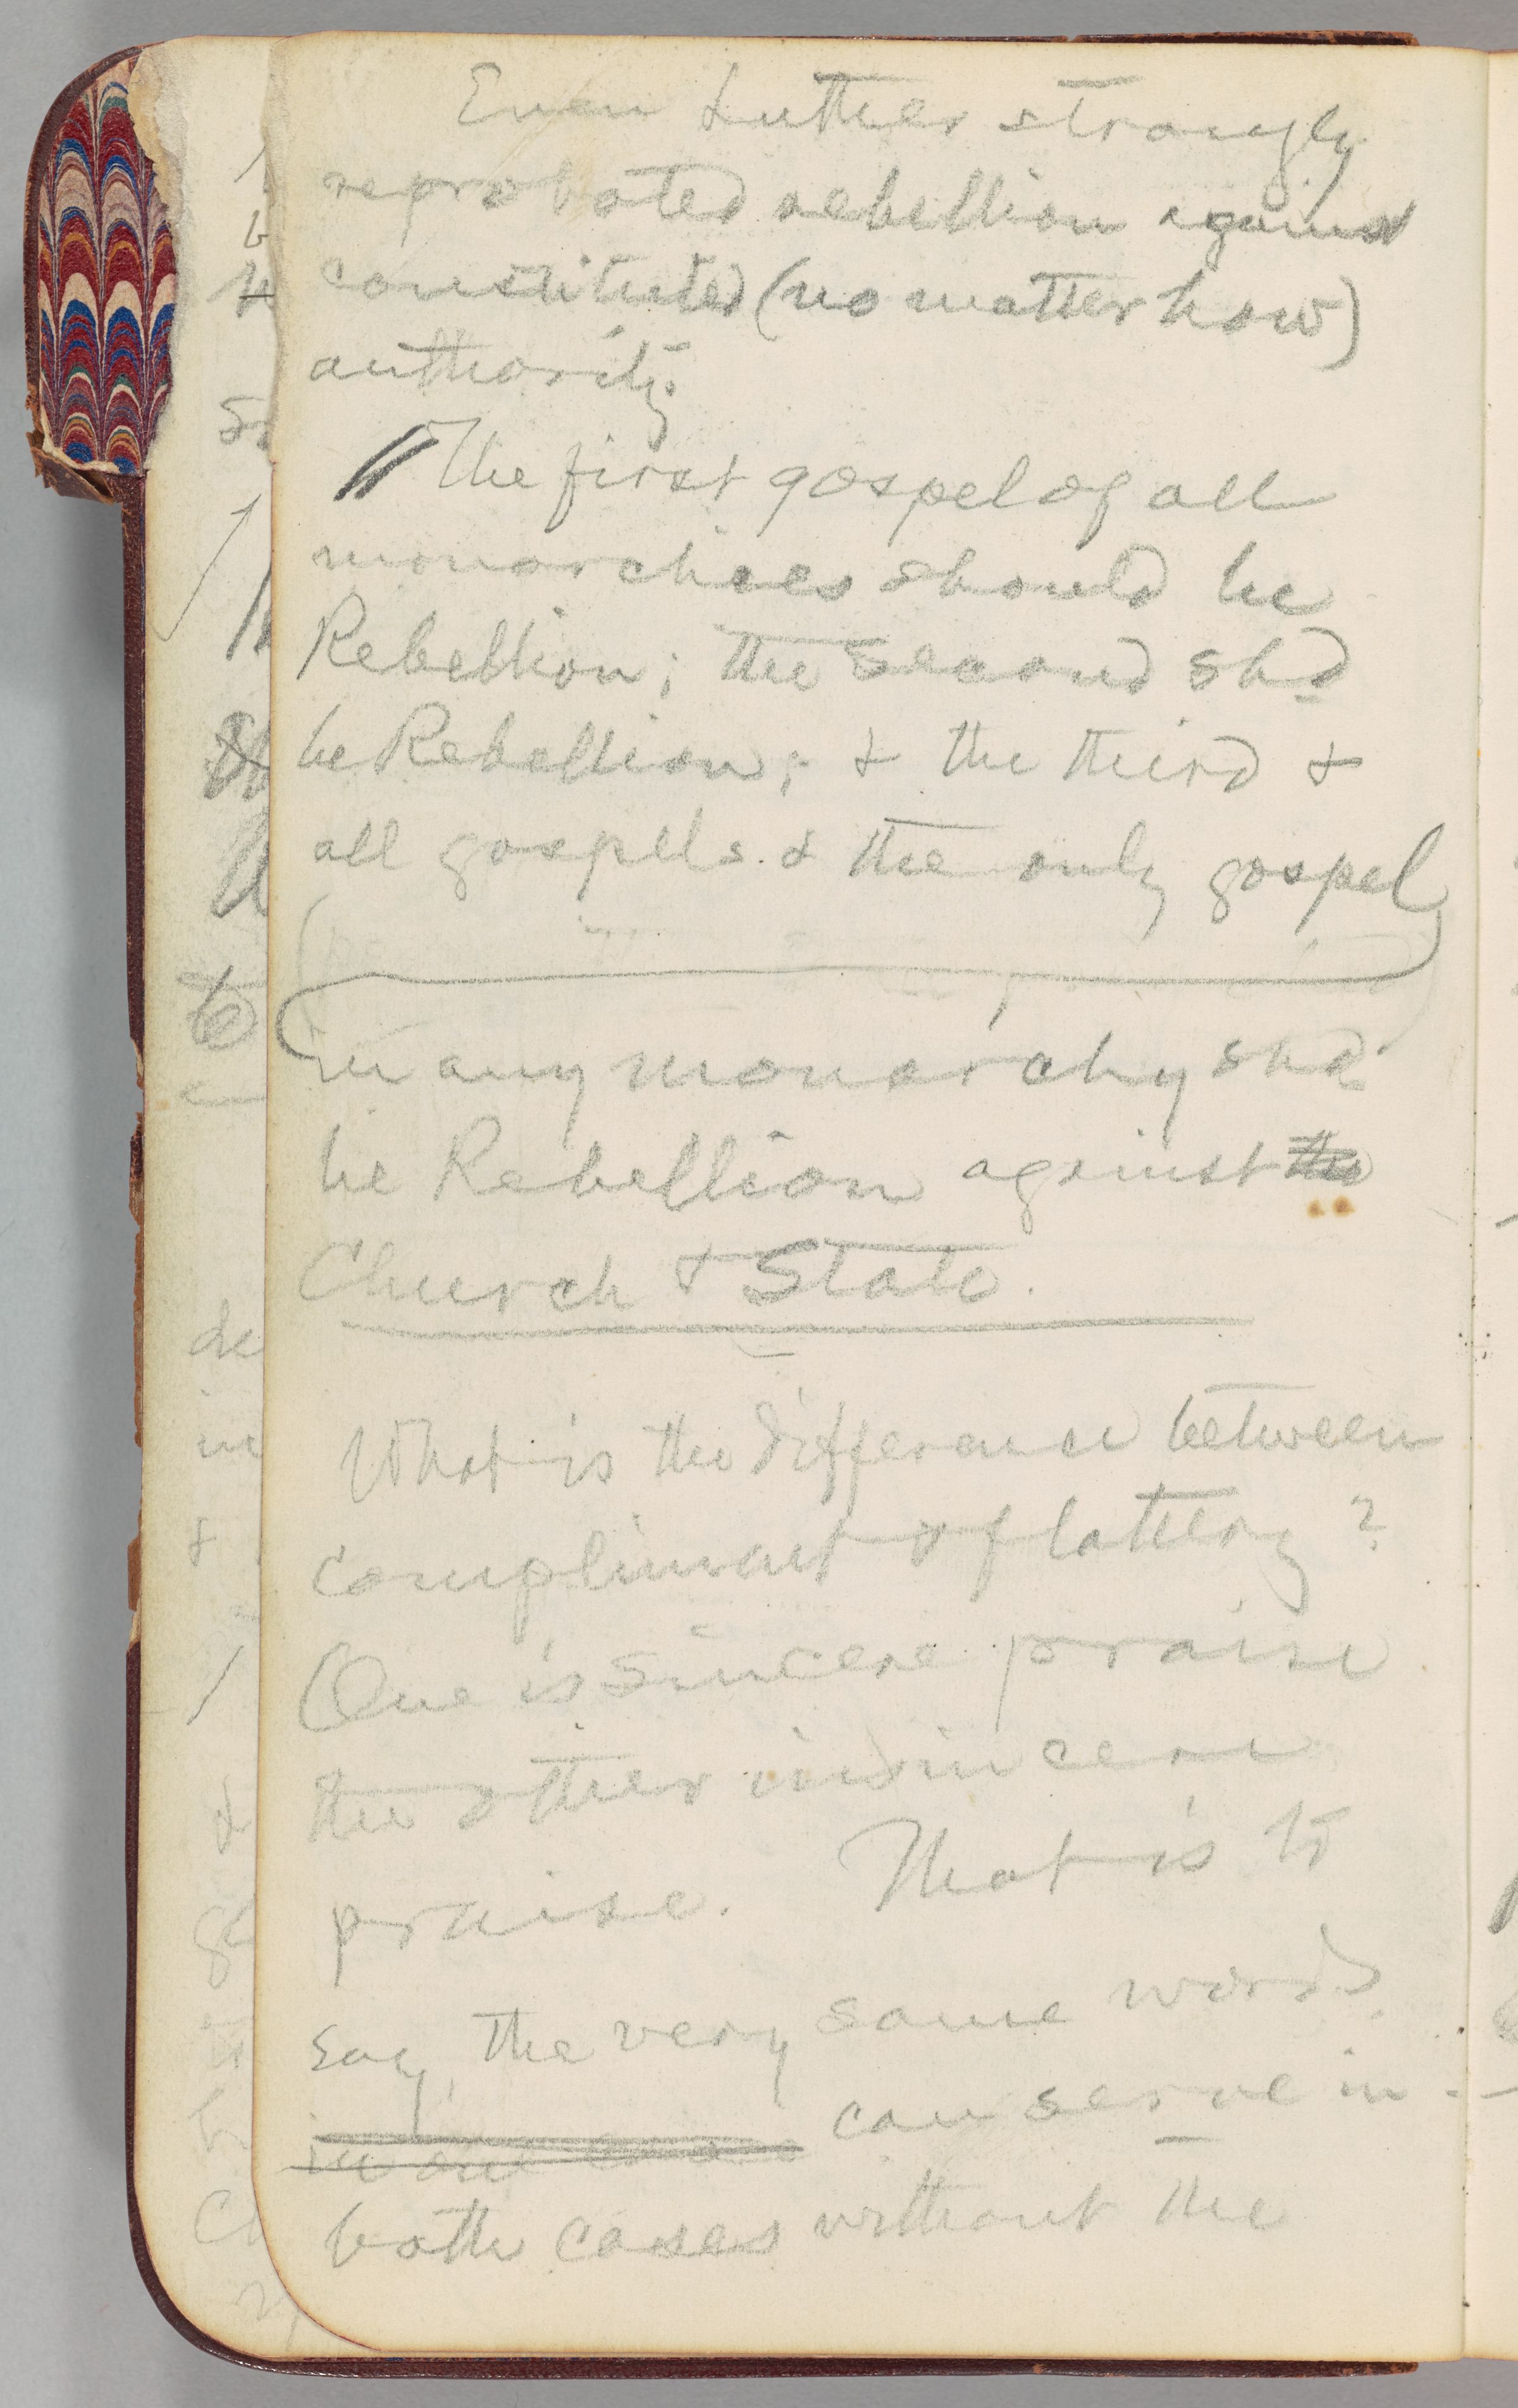 Even Luther strongly
reprobated rebellion against
constituted (no matter how)
authority.
The first gospel of all
monarchies should be
Rebellion; the second shd
be Rebellion; & the third &
all gospels. & the only gospel
in any monarchy shd
be Rebellion against the
Church & State.
What is the difference between
compliment & flattery?
One is sincere praise
the other insincere
praise. That is to
say, the very same words
in one case can serve in
both cases without the